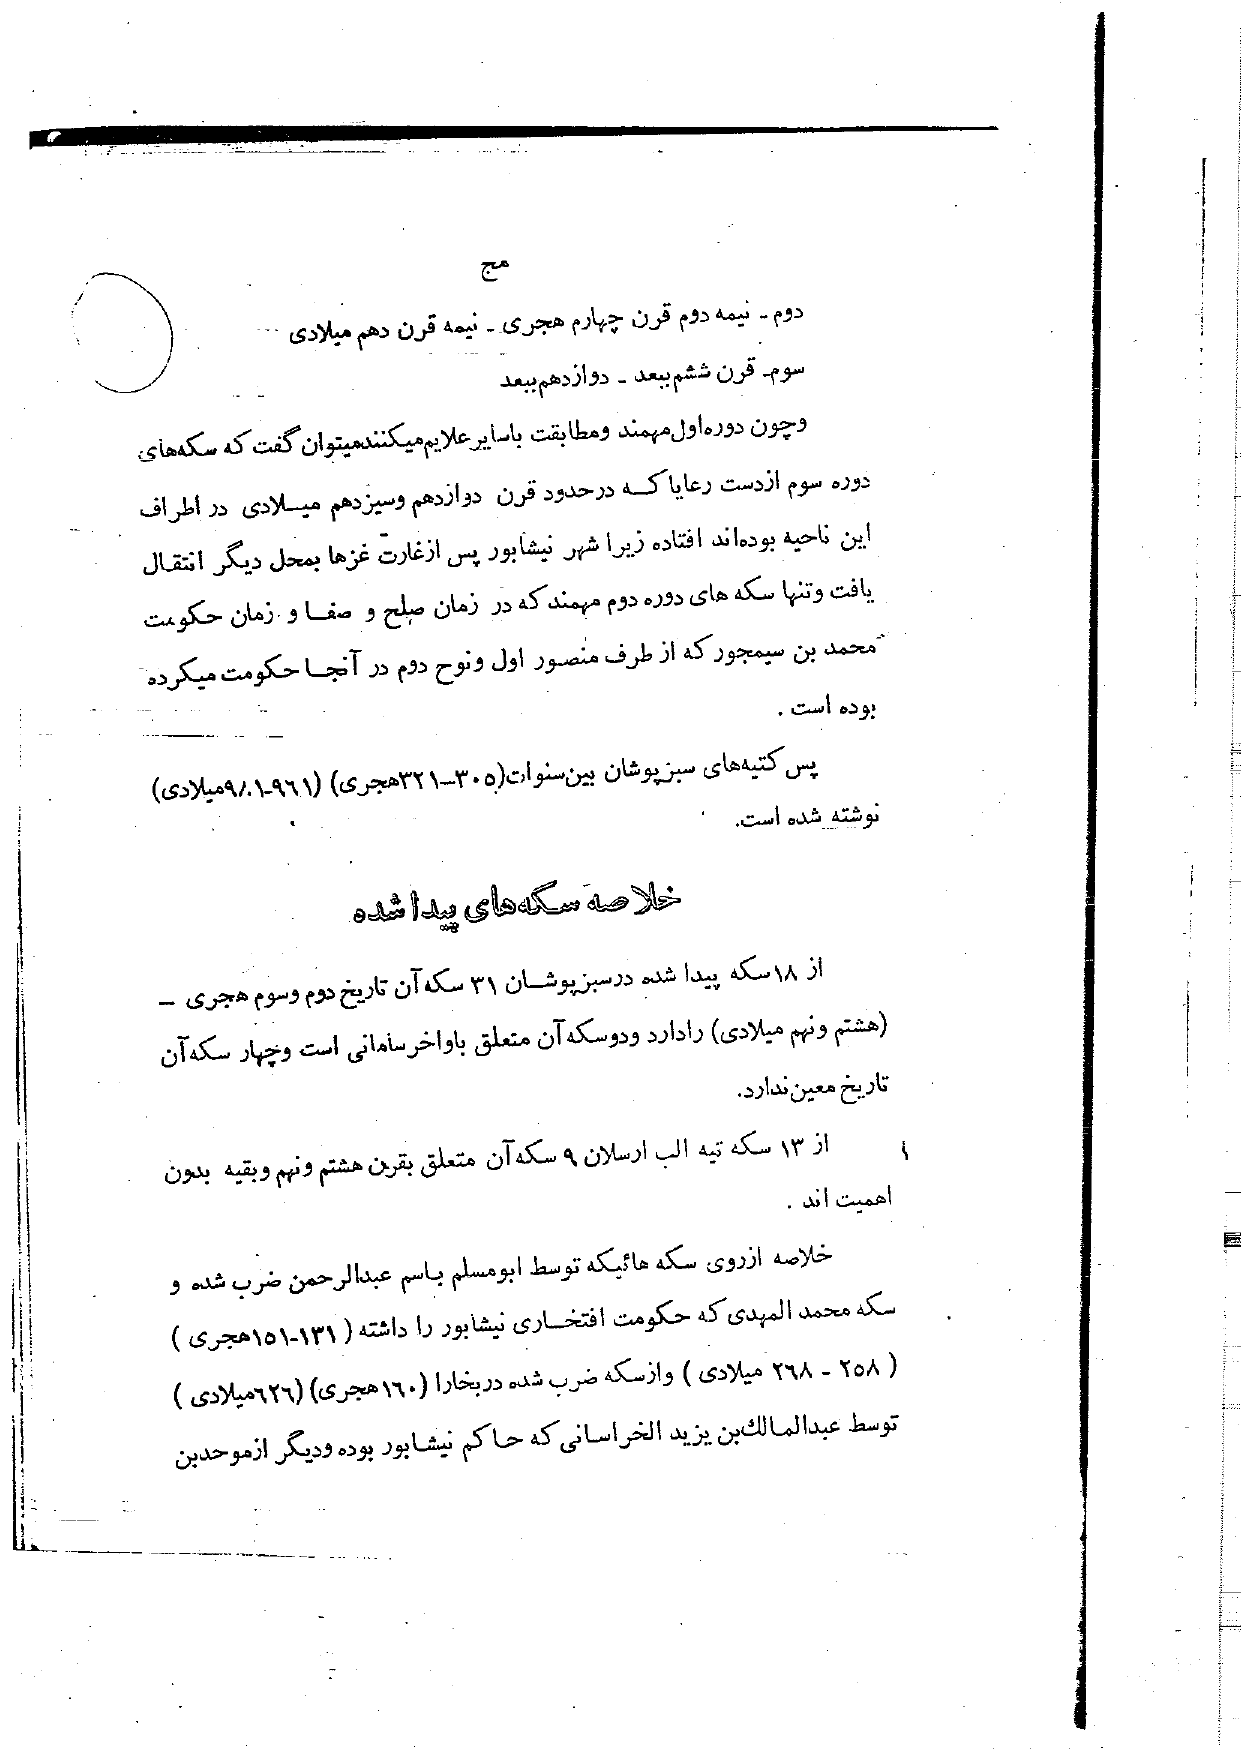 مج
دوم ـ نیمه دوم قرن چهارم هجری ـ نیمه قرن دهم میلادی
سوم ـ قرن ششم ببعد ـ دوازدهم ببعد
وچون دوره اول مهمند ومطابقت باسایر علایم میکنند میتوان گفت که سکه‌های
دوره سوم ازدست رعایا کــه درحدود قرن دوازدهم وسیزدهم میــلادی در اطراف
این ناحیه بوده‌اند افتاده زیرا شهر نیشابور پس ازغارت غزها بمحل دیگر انتقال
یافت وتنها سکه های دوره دوم مهمند که در زمان صلح و صفــا و زمان حکومت
محمد بن سیمجور که از طرف منصور اول ونوح دوم در آنجــا حکومت میکرده
بوده است .
پس کتیبه‌های سبزپوشان بین سنوات (۳۰۵–۳۲۱هجری) (۹۶۱-۹/۰۱میلادی)
نوشته شده است.
خلاصه سکه‌های پیدا شده
از ۱۸سکه پیدا شده درسبزپوشــان ۳۱ سکه آن تاریخ دوم وسوم هجری –
(هشتم ونهم میلادی) رادارد ودوسکه آن متعلق باواخرسامانی است وچهار سکه آن
تاریخ معین ندارد.
از ۱۳ سکه تپه الب ارسلان ۹ سکه آن متعلق بقرن هشتم ونهم وبقیه بدون
اهمیت اند .
خلاصه ازروی سکه هائیکه توسط ابومسلم باسم عبدالرحمن ضرب شده و
سکه محمد المهدی که حکومت افتخــاری نیشابور را داشته ( ۱۳۱-۱۵۱هجری )
( ۲۵۸ - ۲۶۸ میلادی ) وازسکه ضرب شده دربخارا (۱۶۰هجری) (۶۲۶میلادی )
توسط عبدالمالك بن یزید الخراسانی که حاکم نیشابور بوده ودیگر ازموحدبن